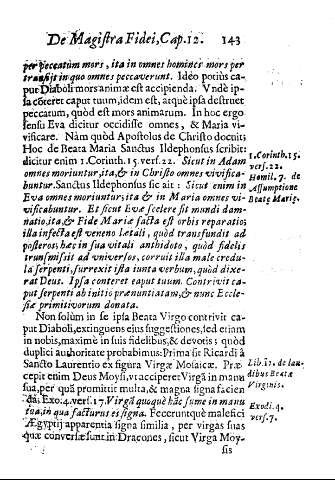 De Magistra Fidei, Cap. 12. 143
per peccatum mors, ita in omnes homines mors per
transijt in quo omnes peccaverunt. Ideò potiùs ca-
put Diaboli mors animæ est accipienda. Vndè ip-
sa cõteret caput tuum, idem est, atquè ipsa destruet
peccatum, quòd est mors animarum. In hoc ergo
sensu Eva dicitur occidisse omnes, & Maria vi-
vificare. Nàm quòd Apostolus de Christo docuit
Hoc de Beata Maria Sanctus Ildephonsus scribit:
dicitur enim 1. Corinth. 15. vers. 22. Sicut in Adam
omnes moriuntur, ita, & in Christo omnes vivifica-
buntur. Sanctus Ildephonsus sic ait: Sicut enim in
Eva omnes moriuntur, ita & in Maria omnes vi-
vificabuntur. Et sicut Evæ scelere fit mundi dam-
natio, ita, & Fide Mariæ facta est orbis reparatio:
illa infecta est veneno lætali, quòd transfundit ad
posteros; hæc in sua vitali anthidoto, quòd fidelis
transmissit ad universos, corruit illa malè credu-
la serpenti, surrexit ista iuncta verbum, quòd dixe-
rat Deus. Ipsa conteret caput tuum. Contrivit ca-
put serpenti ab initio prænuntiatam, & nunc Eccle-
siæ primitivorum donata.
Non solùm in se ipsa Beata Virgo contrivit ca-
put Diaboli, extinguens eius suggestiones, sed etiam
in nobis, maximè in suis fidelibus, & devotis: quòd
duplici authoritate probabimus: Prima sit Ricardi à
Sancto Laurentio ex figura Virgæ Mosaicæ. Præ-
cepit enim Deus Moysi, vt acciperet Virgã in manu
sua, per quã promittit multa, & magna signa facien-
da: Exo. 4. vers. 17. Virgã quoquè hãc sume in manu
tua, in qua facturus es signa. Feceruntquè malefici
Ægyptij apparentia signa similia, per virgas suas
quæ conversæ sunt in Dracones, sicut Virga Moy-
sis
1. Corinth. 15.
vers. 22.
Homil. 7. de
Assumptione
Beatæ Mariæ.
Lib. 12. de lau-
dibus Beatæ
Virginis.
Exodi. 4.
vers. 7.